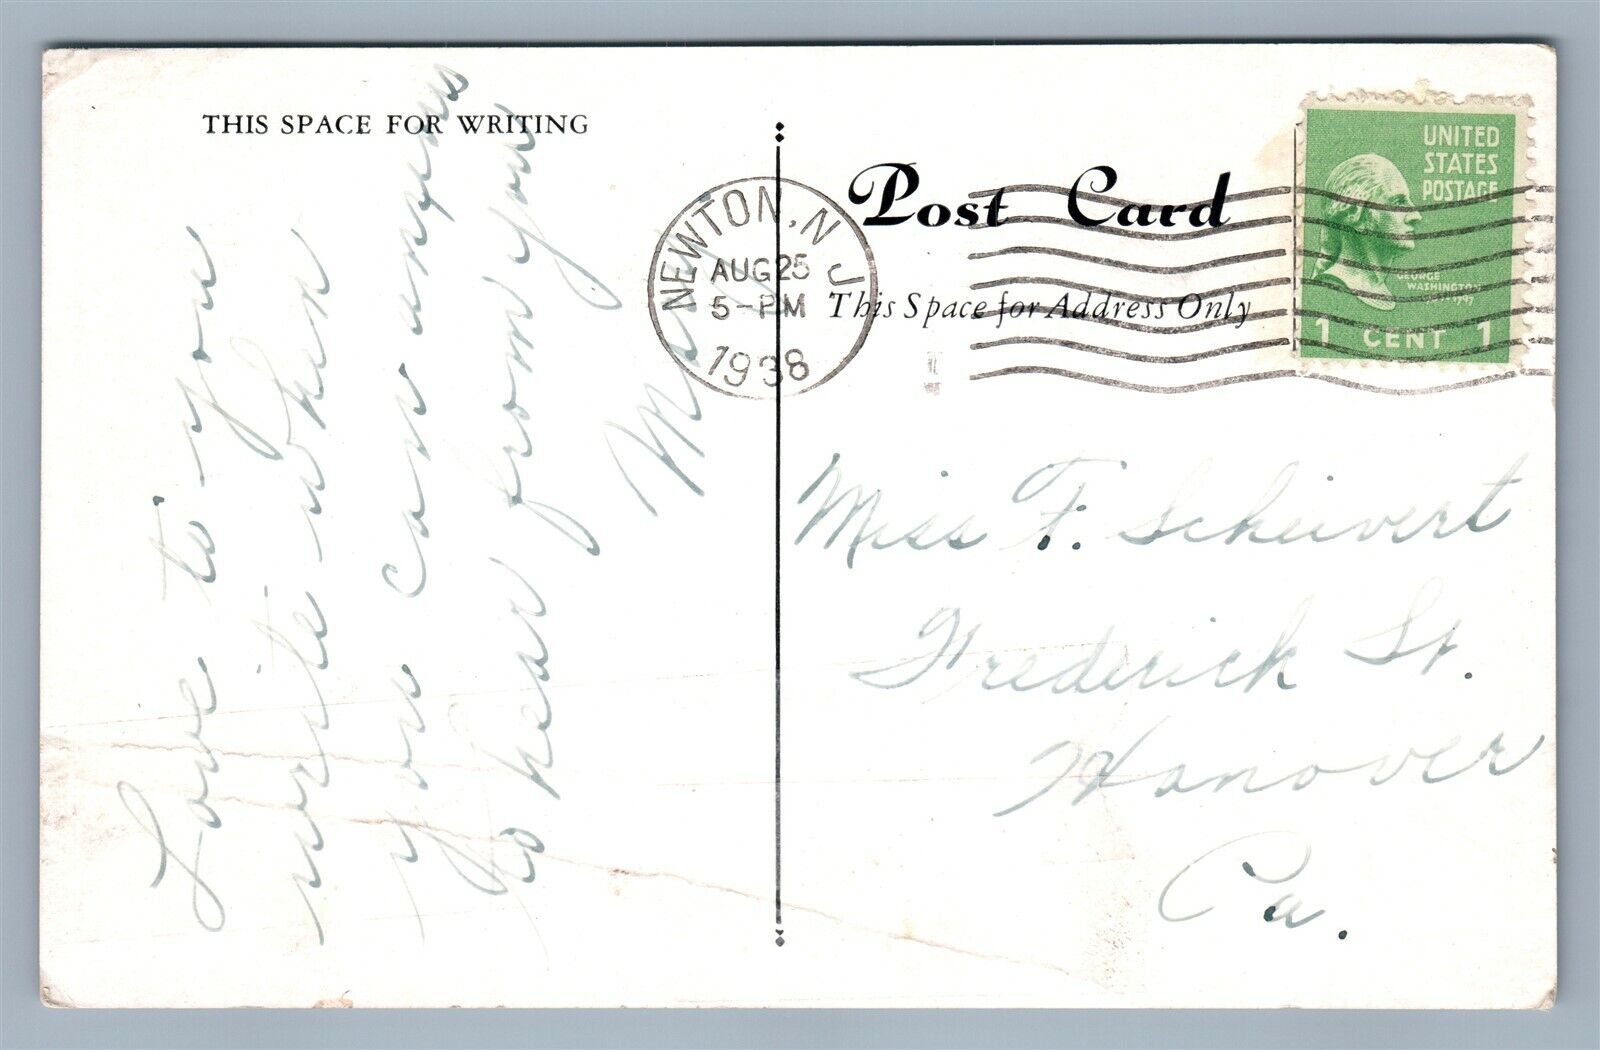 THIS SPACE FOR WRITING
Love to you
write when
you can anxious
to hear from you
Mary
NEWTON, N J
AUG 25
5-PM
1938
Post Card
This Space for Address Only
UNITED
STATES
POSTAGE
GEORGE
WASHINGTON
1 CENT 1
Miss F. Scheivert
Frederick St.
Hanover
Pa.